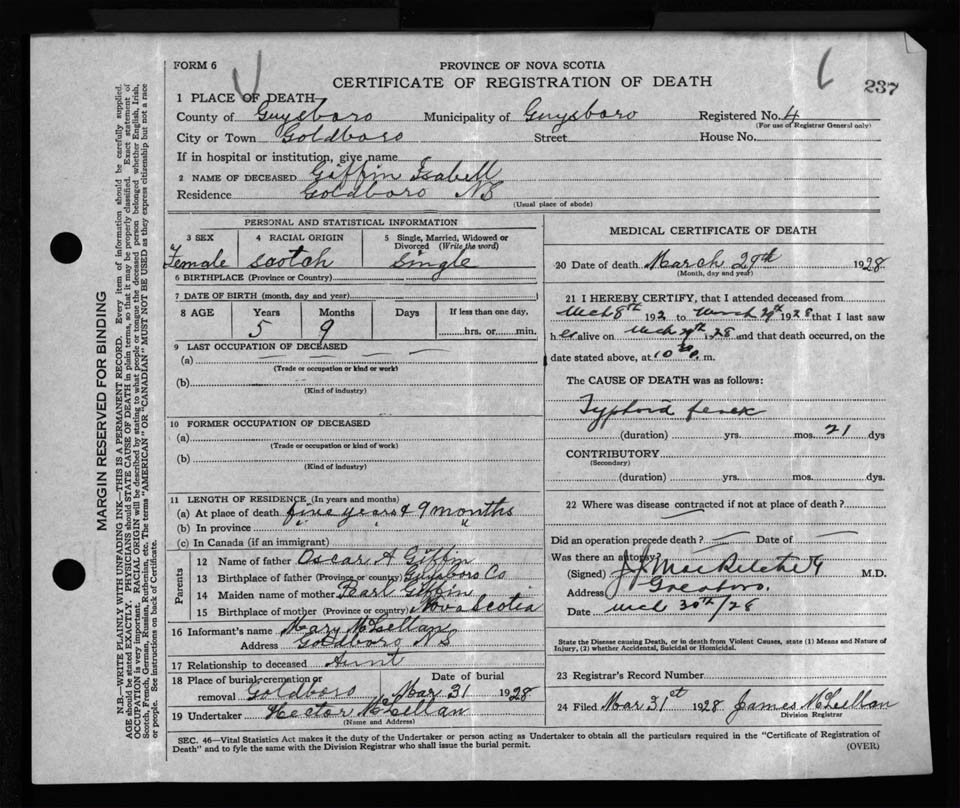 FORM 6
PROVINCE OF NOVA SCOTIA
CERTIFICATE OF REGISTRATION OF DEATH
237
1 PLACE OF DEATH
County of Guysboro Municipality of Guysboro Registered No. 4
(For use of Registrar General only)
City or Town Goldboro Street House No.
If in hospital or institution, give name
2 NAME OF DECEASED Giffin Isabell
Residence Goldboro NS
(Usual place of abode)
PERSONAL AND STATISTICAL INFORMATION
3 SEX 4 RACIAL ORIGIN 5 Single, Married, Widowed or Divorced (Write the word)
Female Scotch Single
6 BIRTHPLACE (Province or Country)
7 DATE OF BIRTH (month, day and year)
8 AGE Years Months Days If less than one day,
5 9 hrs. or min.
9 LAST OCCUPATION OF DECEASED
(a)
(Trade or occupation or kind or work)
(b)
(Kind of industry)
10 FORMER OCCUPATION OF DECEASED
(a)
(Trade or occupation or kind of work)
(b)
(Kind of industry)
11 LENGTH OF RESIDENCE (In years and months)
(a) At place of death five years & 9 months
(b) In province " "
(c) In Canada (if an immigrant)
Parents
12 Name of father Oscar A Giffin
13 Birthplace of father (Province or country) Guysboro Co
14 Maiden name of mother Pearl Giffin
15 Birthplace of mother (Province or country) Nova Scotia
16 Informant's name Mary McLellan
Address Goldboro NS
17 Relationship to deceased Aunt
18 Place of burial, cremation or removal Goldboro Date of burial Mar 31 1928
19 Undertaker Hector McLellan
(Name and Address)
MEDICAL CERTIFICATE OF DEATH
20 Date of death March 29th 1928
(Month, day and year)
21 I HEREBY CERTIFY, that I attended deceased from
Mch 8th 192 to March 29th 1928 that I last saw
h er alive on Mch 29th 1928 and that death occurred, on the
date stated above, at 10 30 p. m.
The CAUSE OF DEATH was as follows:
Typhoid fever
(duration) yrs. mos. 21 dys
CONTRIBUTORY
(Secondary)
(duration) yrs. mos. dys.
22 Where was disease contracted if not at place of death?
Did an operation precede death? Date of
Was there an autopsy?
(Signed) M.D.
Address
Date Mch 30th/28
State the Disease causing Death, or in death from Violent Causes, state (1) Means and Nature of
Injury, (2) whether Accidental, Suicidal or Homicidal.
23 Registrar's Record Number
24 Filed Mar 31st 1928 James McLellan
Division Registrar
SEC. 46—Vital Statistics Act makes it the duty of the Undertaker or person acting as Undertaker to obtain all the particulars required in the "Certificate of Registration of
Death" and to fyle the same with the Division Registrar who shall issue the burial permit.
(OVER)
MARGIN RESERVED FOR BINDING
N.B.—WRITE PLAINLY WITH UNFADING INK—THIS IS A PERMANENT RECORD. Every item of information should be carefully supplied.
AGE should be stated EXACTLY. PHYSICIANS should STATE CAUSE OF DEATH in plain terms, so that it may be properly classified. Exact statement of
OCCUPATION is very important. RACIAL ORIGIN will be described by stating to what people or tongue the deceased person belonged whether English, Irish,
Scotch, French, German, Russian, Ruthenian, etc. The terms "AMERICAN" OR "CANADIAN" MUST NOT BE USED as they express citizenship but not a race
or people. See instructions on back of Certificate.